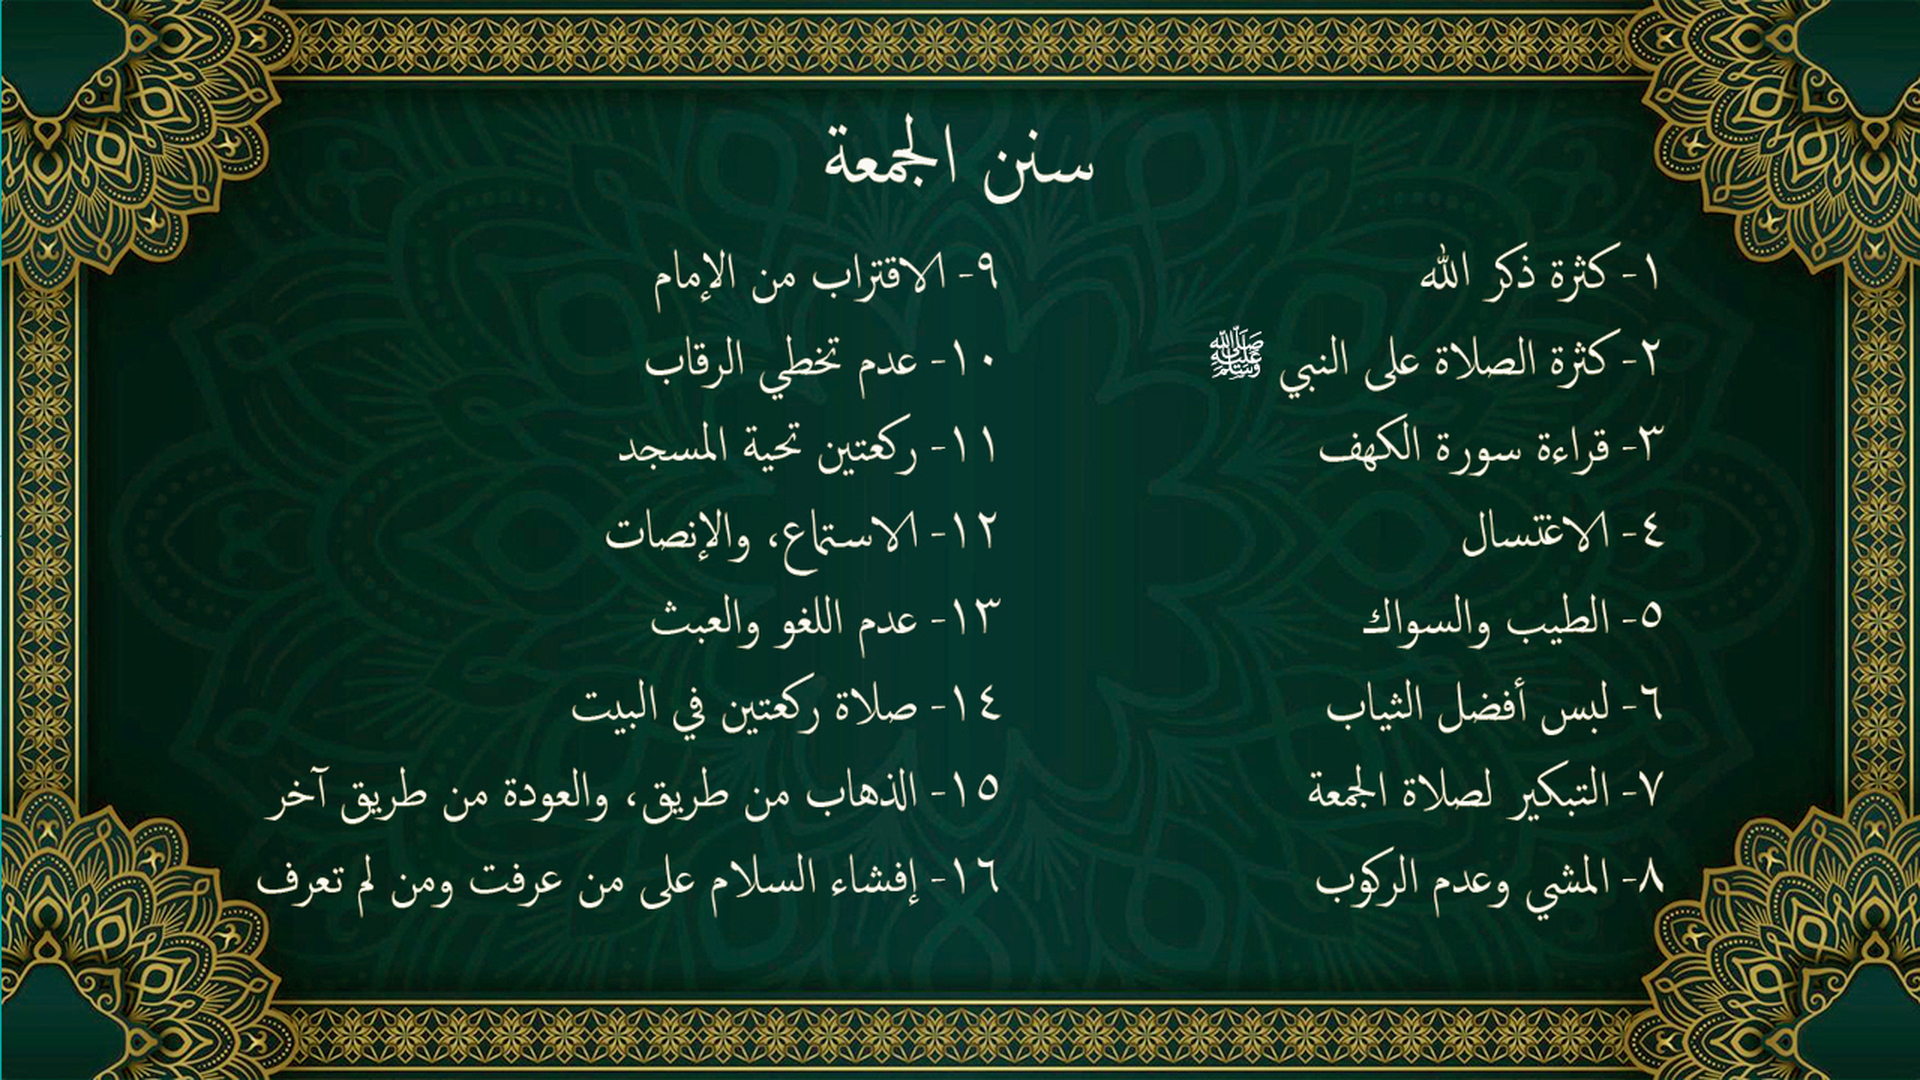 سنن الجمعة
١- كثرة ذكر الله
٢- كثرة الصلاة على النبي ﷺ
٣- قراءة سورة الكهف
٤- الاغتسال
٥- الطيب والسواك
٦- لبس أفضل الثياب
٧- التبكير لصلاة الجمعة
٨- المشي وعدم الركوب
٩- الاقتراب من الإمام
١٠- عدم تخطي الرقاب
١١- ركعتين تحية المسجد
١٢- الاستماع، والإنصات
١٣- عدم اللغو والعبث
١٤- صلاة ركعتين في البيت
١٥- الذهاب من طريق، والعودة من طريق آخر
١٦- إفشاء السلام على من عرفت ومن لم تعرف